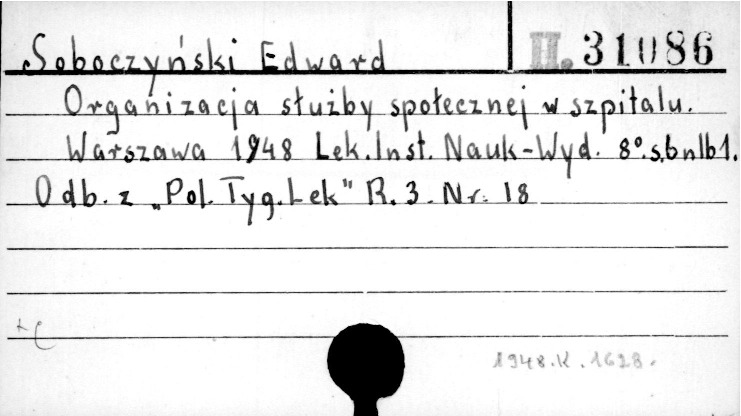 Soboczyński Edward
II. 31086
Organizacja służby społecznej w szpitalu.
Warszawa 1948 Lek. Inst. Nauk-Wyd. 8°. s. 6 nlb 1.
Odb. z „Pol. Tyg. Lek" R. 3. Nr. 18
1948.K.1628.